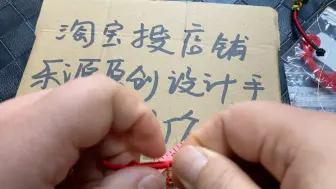 淘宝搜店铺
乐源原创设计手